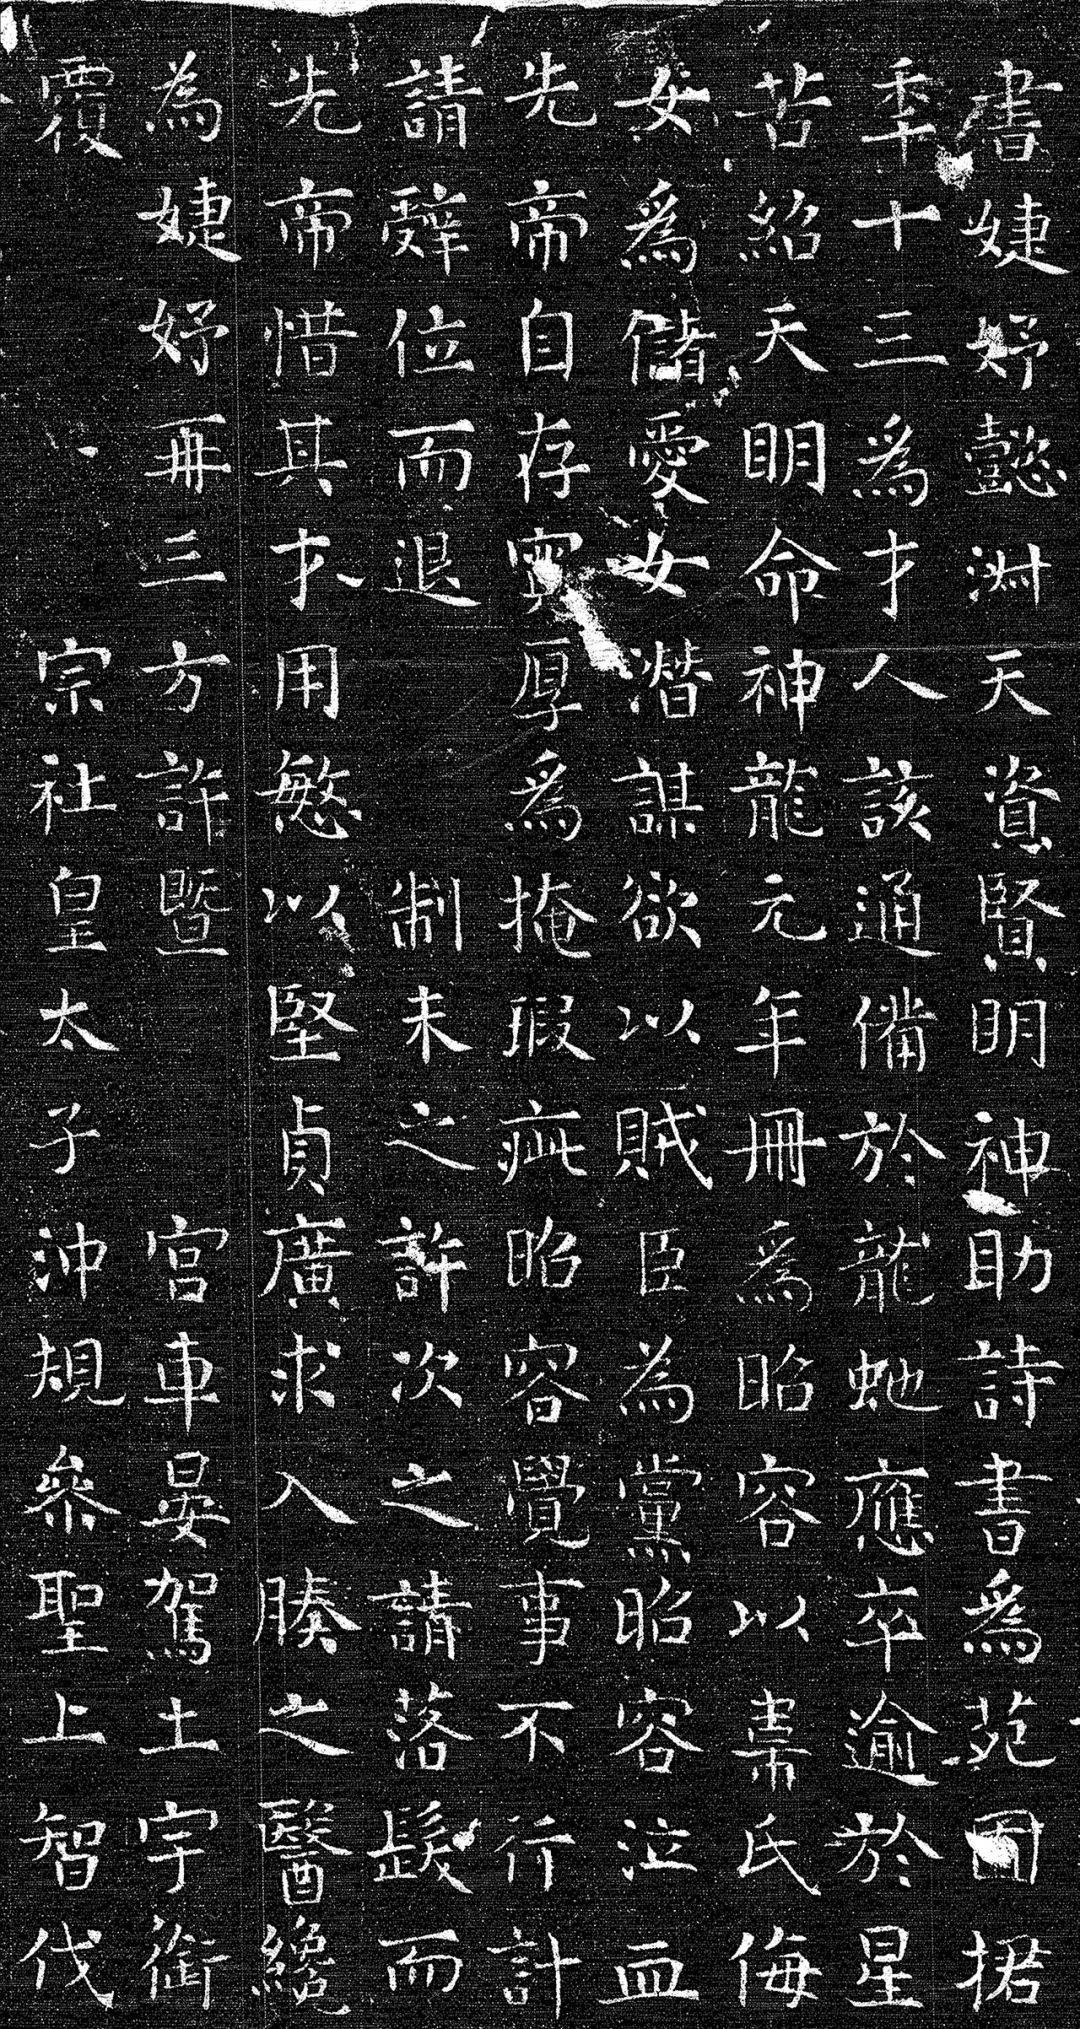 書婕妤懿淑天資賢明神助詩書爲苑囿捃
年十三爲才人該通備於龍虵應卒逾於星
苦紹天明命神龍元年冊爲昭容以韋氏侮
女爲儲愛女潛謀欲以賊臣為黨昭容泣血
先帝自存寬厚爲掩瑕疵昭容覺事不行計
請辤位而退 制未之許次之請落髮而
先帝惜其才用慜以堅貞廣求入腠之醫纔
為婕妤再三方許暨 宮車晏駕土宇銜
覆 宗社皇太子沖規參聖上智伐